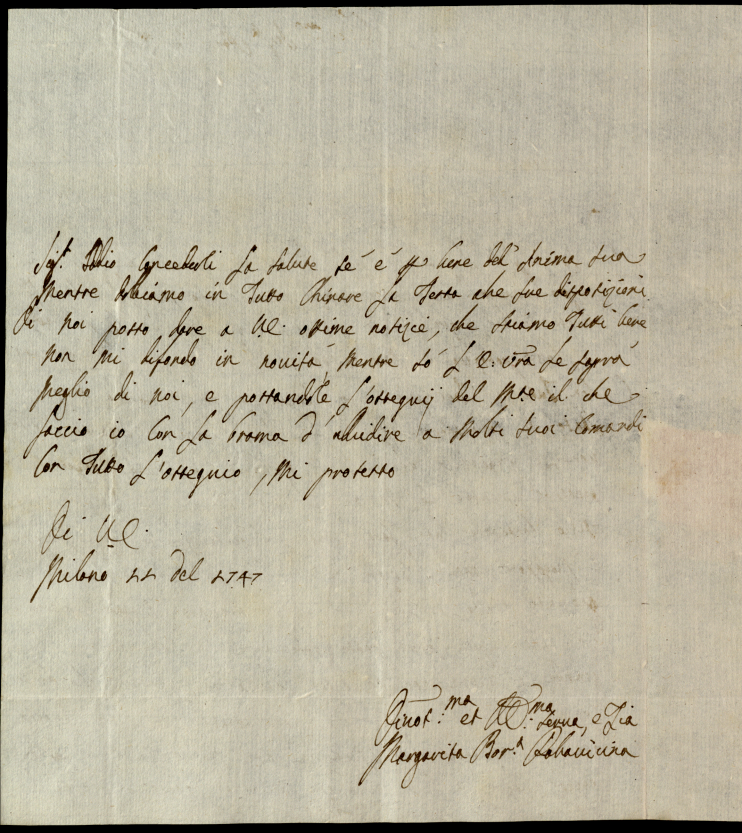 Sig.r Iddio Concederli La Salute se é p bene del Anima Sua
Mentre dobiamo in Tutto Chinare La Testa alle Sue dispositioni
Di Noi posso dare a V.E. ottime notizie, che Stiamo Tutti bene
non mi difondo in novità, Mentre sò L'E: vra Le saprà
Meglio di Noi, e portandole L'ossequij del Mse il che
faccio io Con La brama d' ubidire a Molti Suoi Comandi
Con Tutto L'ossequio, Mi protesto
Di V.E.
Milano 11 del 1747
Divot.ma et Obl.ma Serva, e Zia
Margarita Bor.a Palavicina